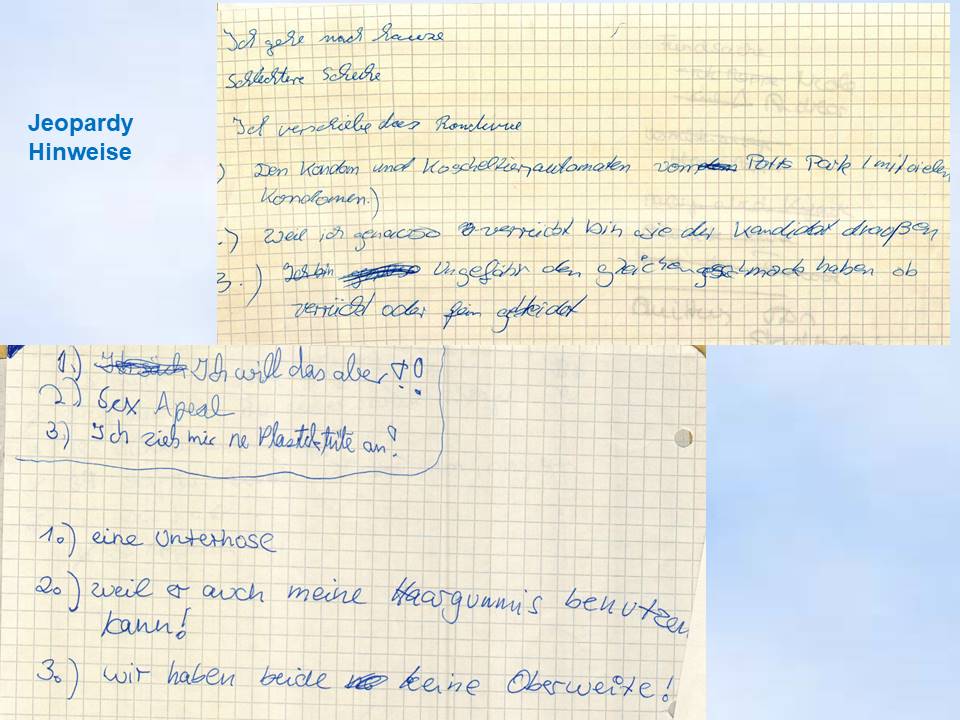 Jeopardy
Hinweise
Ich gehe nach hause
Schlechtere Scheihe
Ich verschiebe das Rondevue
) Den Kondom und Koscheltierautomaten vom Potts Park (mit vielen
Kondomen.)
.) Weil ich genauso verrückt bin wie der Kandidat draußen
3.) Ungefähr den gleichen geschmack haben ob
verrückt oder fein gekleidet
1.) Ich will das aber !!
2.) Sex Apeal
3.) Ich zieh mir ne Plastiktüte an!
1.) eine Unterhose
2.) weil er auch meine Haargummis benutzen
kann!
3.) wir haben beide keine Oberweite!